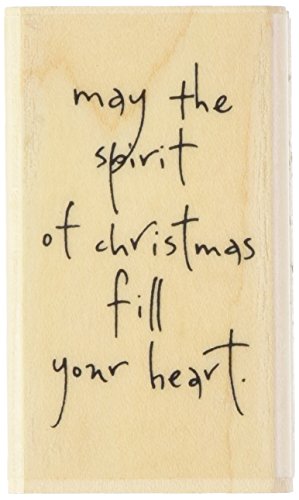 may the
spirit
of christmas
fill
your heart.